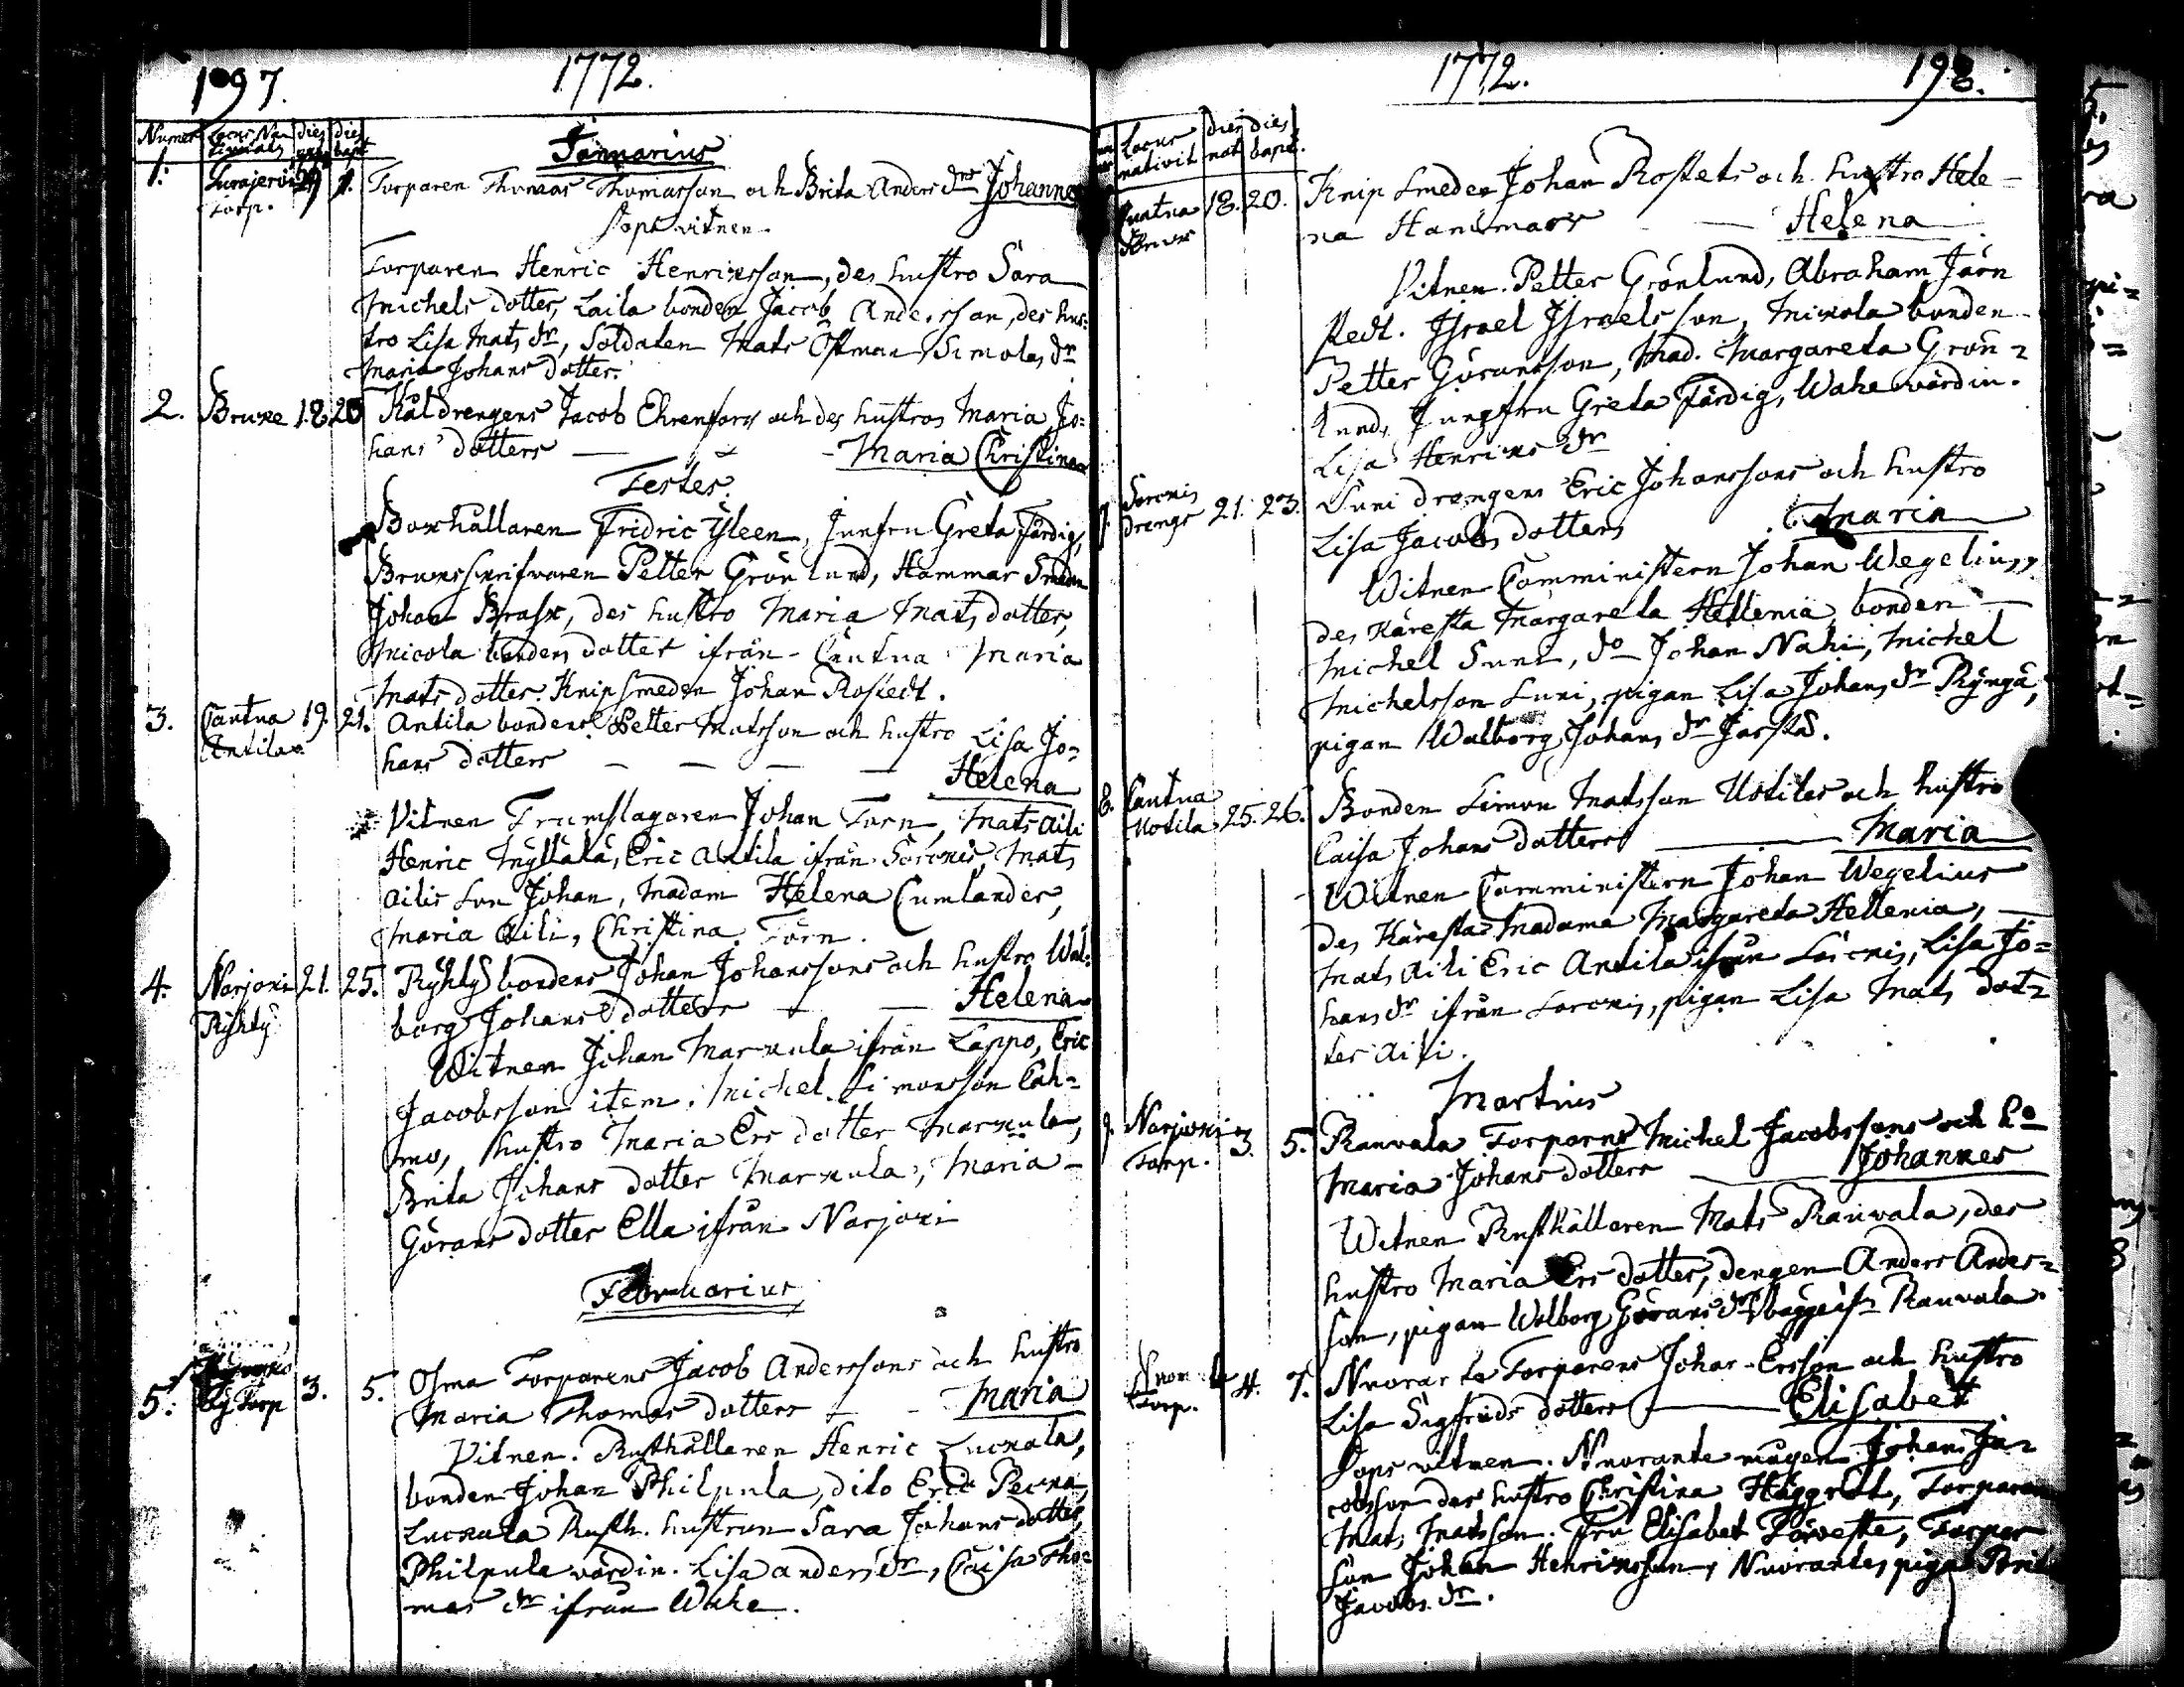 197.
1772.
Numer
Locus Na
tivitatis
dies
nat
dies
bapt
Januarius
1.
Turajervi
Torp.
29
1.
Torparen Thomas Thomasson och Brita Anders dr Johannes
Dopsvitnen.
Torparen Henric Henricsson, des hustro Sara
Michels dotter, Laila bonden Jacob Andersson, des hus-
tro Lisa Mats dr, Soldaten Mats Östman, Simolas dr
Maria Johans dotter.
2.
Bruke
18
20
Kåldrengens Jacob Ehrenfors och des hustros Maria Jo-
hans dotters — Maria Christina
Testes.
Boxhållaren Fridric Yleen, Junfru Greta Färdig,
Bruksskrifvaren Petter Grönlund, Hammar Smeden
Johan Brask, des hustro Maria Mats dotter,
Micola bondens dotter ifrån Cautua Maria
Mats dotter. Knipsmeden Johan Rostedt.
3.
Cautua
Antila
19.
21.
Antila bondens Petter Matsson och hustro Lisa Jo-
hans dotters — — — — Helena
Vitnen Trumslagaren Johan Törn, Mats Aili
Henric Myllälä, Eric Antila ifrån Sorcnis, Mats
Ailis Son Johan, Madam Helena Cumlander,
Maria Aili, Christina Törn.
4.
Narjoki
Ryhty
21.
25.
Ryhty bondens Johan Johanssons och hustro Wal-
borg Johans dotters — Helena
Witnen Johan Markula ifrån Lappo, Eric
Jacobsson item. Michel Simonsson Cah-
mo, hustro Maria Ers dotter Markula,
Brita Johans dotter Markula, Maria
Görans dotter Ella ifrån Narjoki
Februarius
5.
By Torp
3.
5.
Osma Torparens Jacob Anderssons och hustro
Maria Thomas dotters — Maria
Vitnen. Rusthållaren Henric Luckala,
bonden Johan Philpula, dito Eric Pecka,
Luckala Rusth. hustrun Sara Johans dotter,
Philpula värdin. Lisa anders dr, Caisa Tho-
mas dr ifrån Wahe.
1772.
198.
Locus
nativit
dies
nat
dies
bapt.
Cautua
18.
20.
Knip Smedens Johan Rostets och hustro Hele-
na Hammars — Helena
Vitnen. Petter Grönlund, Abraham Järn
stedt. Israel Israelsson, Mikola bonden
Petter Göransson, Mad. Margareta Grön-
lund, Jungfru Greta Färdig, Wahe värdin.
Lisa Henrics dr
7.
Sorcnis
drengs
21.
23.
Suni drengens Eric Johanssons och hustro
Lisa Jacobs dotters Maria
Witnen Comministern Johan Wegelius,
des Käresta Margareta Hellenia, bonden
Michel Suni, do Johan Nahi, Michel
Michelsson Suni, pigan Lisa Johans dr Rynga,
pigan Walborg Johans dr Jarsta.
8.
Cautua
Uotila
25.
26.
Bonden Simon Matsson Uotilas och hustro
Caisa Johans dotters — Maria
Witnen Comministern Johan Wegelius
des Käresta Madame Margareta Hellenia,
Mats Aili Eric Antila ifrån Sorcnis, Lisa Jo-
hans dr ifrån Sorcnis, pigan Lisa Mats dot-
ter Aili.
Martius
9.
Narjoki
Torp.
3.
5.
Rauvala Torparens Michel Jacobssons och ho
Maria Johans dotters — Johannes
Witnen Rusthållaren Mats Rauvala, des
hustro Maria Ers dotter, drengen Anders Anders-
son, pigan Walborg Görans dr bägge ifr Rauvala.
Torp.
4.
7.
Nuoranta Torparens Johan Ersson och hustro
Lisa Sigfrids dotters — Elisabet
Dops vitnen. Nuorante mågen Johan Ja-
cobsson des hustro Christina Häggrot, Torparen
Mats Matsson. Fru Elisabet Törveste, Torpar
Son Johan Henricsson, Nuorantes piga Brita
Jacobs dr.